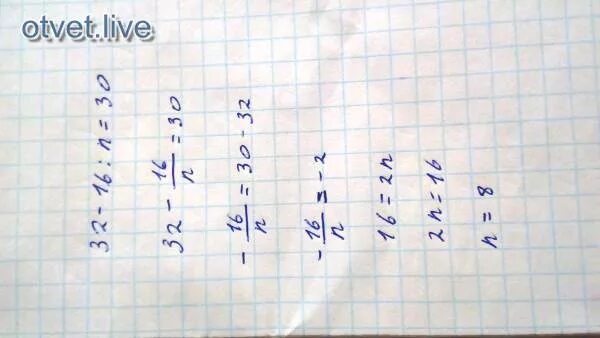 otvet.live
32 - 16 : n = 30
32 - 16/n = 30
- 16/n = 30 - 32
- 16/n = -2
16 = 2n
2n = 16
n = 8